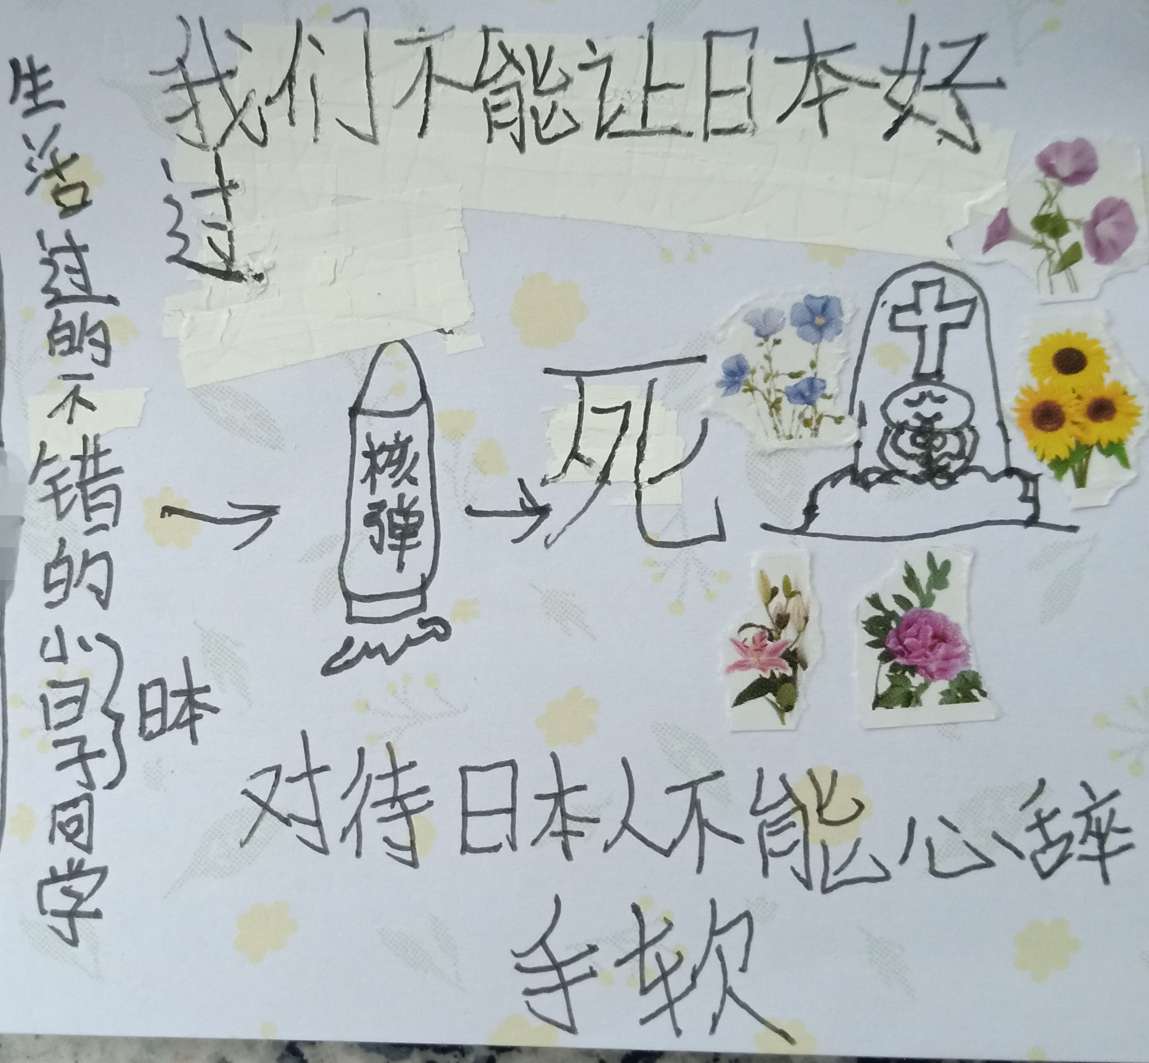 我们不能让日本好
过
生活过的不错的小日子同学
日本
核弹
死
对待日本人不能心辞
手软